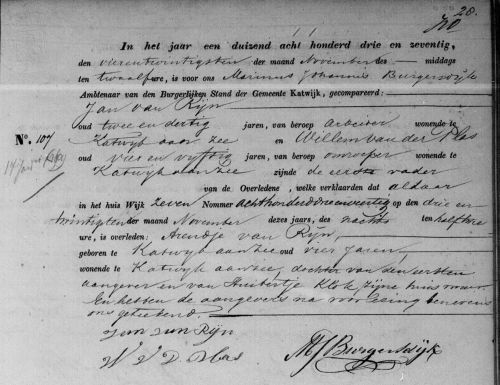 28.
In het jaar een duizend acht honderd drie en zeventig,
den vierentwintigsten der maand November des — middags
ten twaalf ure, is voor ons Marinus Johannis Burgersdijk
Ambtenaar van den Burgerlijken Stand der Gemeente Katwijk, gecompareerd:
Jan van Rijn
oud twee en dertig jaren, van beroep arbeider wonende te
Nº. 107 Katwijk aan zee en Willem van der Plas
oud vier en vijftig jaren, van beroep omroeper wonende te
Katwijk aan zee zijnde de eerste vader
van de Overledene, welke verklaarden dat aldaar
in het huis Wijk zeven Nommer achthonderd op den drie en
twintigsten der maand November dezes jaars, des nachts ten half twee
ure, is overleden: Arendje van Rijn,
geboren te Katwijk aan zee oud vier jaren,
wonende te Katwijk aan zee, dochter van den eersten
aangever en van Huibertje Klok zijne huisvrouw.
En hebben de aangevers na voorlezing benevens
ons geteekend.
Jan van Rijn
W V D Plas
MJ Burgersdijk